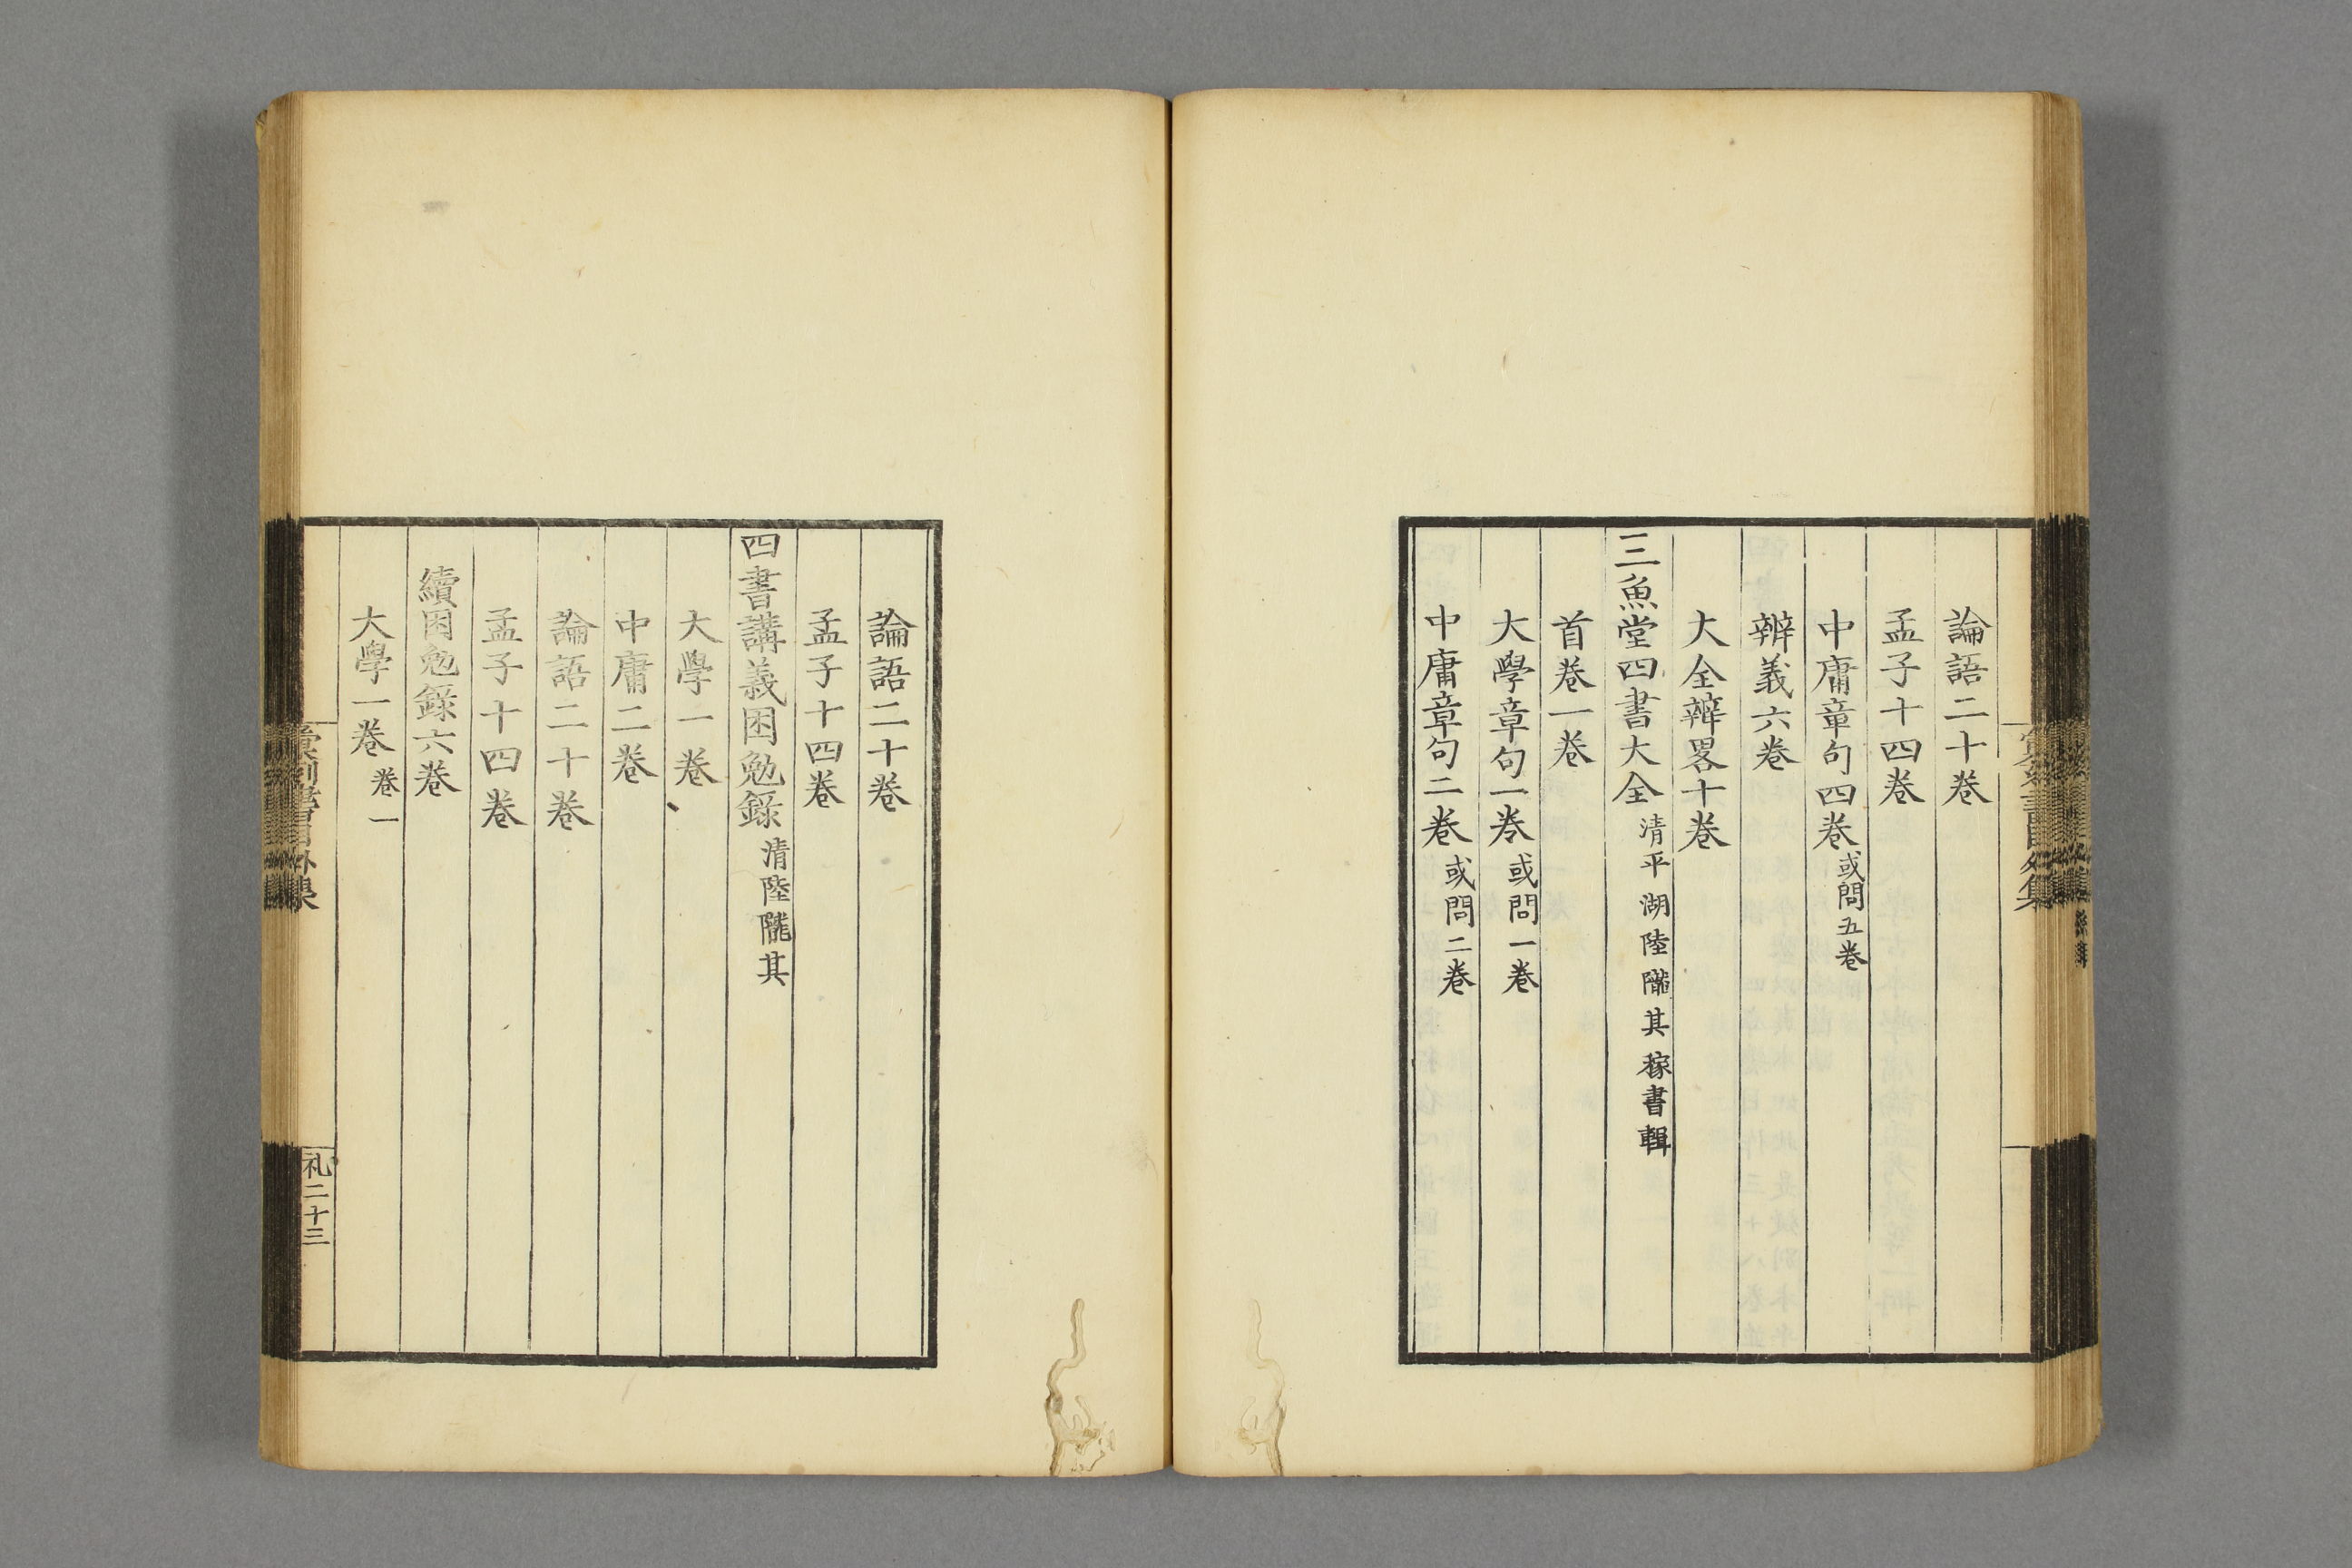 論語二十卷
孟子十四卷
中庸章句四卷或問五卷
辨義六卷
大全辨畧十卷
三魚堂四書大全清平湖陸隴其稼書輯
首卷一卷
大學章句一卷或問一卷
中庸章句二卷或問二卷
論語二十卷
孟子十四卷
四書講義困勉錄清陸隴其
大學一卷
中庸二卷
論語二十卷
孟子十四卷
續困勉錄六卷
大學一卷卷一
礼二十三